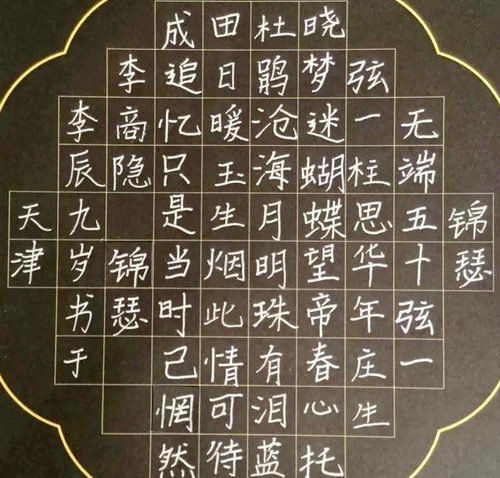 锦瑟
无端五十弦一
弦一柱思华年庄生
晓梦迷蝴蝶望帝春心托
杜鹃沧海月明珠有泪蓝
田日暖玉生烟此情可待
成追忆只是当时已惘然
李商隐 锦瑟
李辰九岁书于
天津